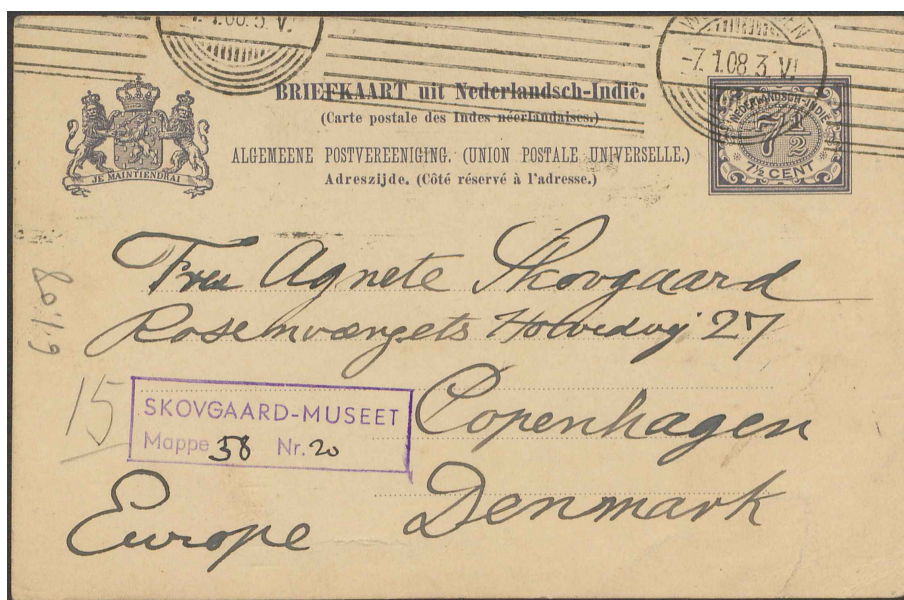 7.1.08.3 V.
-7.1.08.3 V.
BRIEFKAART uit Nederlandsch-Indië.
(Carte postale des Indes néerlandaises.)
ALGEMEENE POSTVEREENIGING. (UNION POSTALE UNIVERSELLE.)
Adreszijde. (Côté réservé à l'adresse.)
JE MAINTIENDRAI
NEDERLANDSCH-INDIË
7½
7½ CENT
Fru Agnete Skovgaard
Rosenvængets Hovedvej 27
Copenhagen
Denmark
Europe
15
SKOVGAARD-MUSEET
Mappe 58 Nr. 20